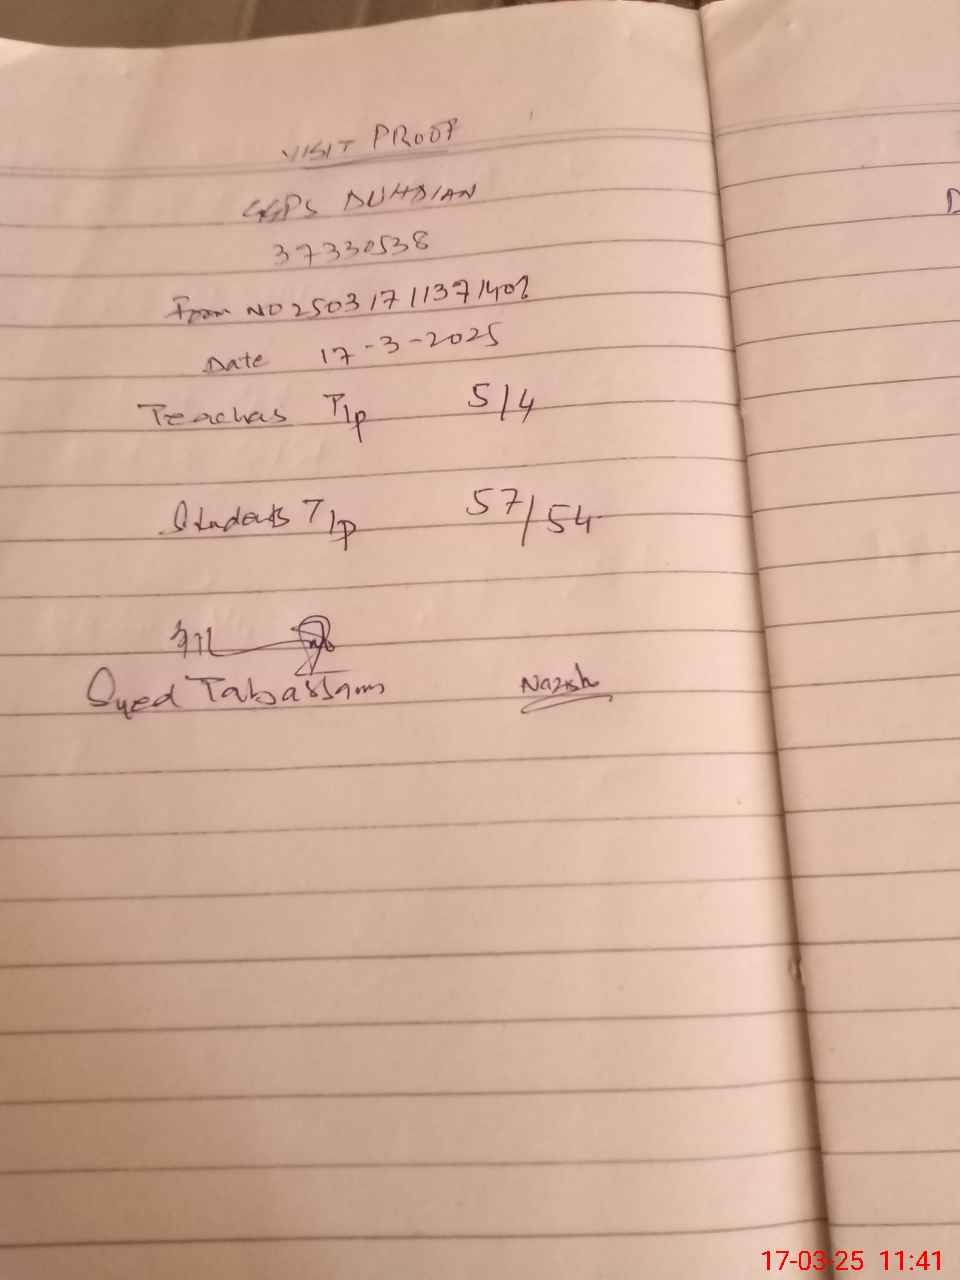 VISIT PROOF
GGPS DUHDIAN
37330538
From NO 250317113711402
Date 17-3-2025
Teachers T/p 5/4
Students T/p 57/54
Syed Tabassam Nazish
D
17-03-25 11:41